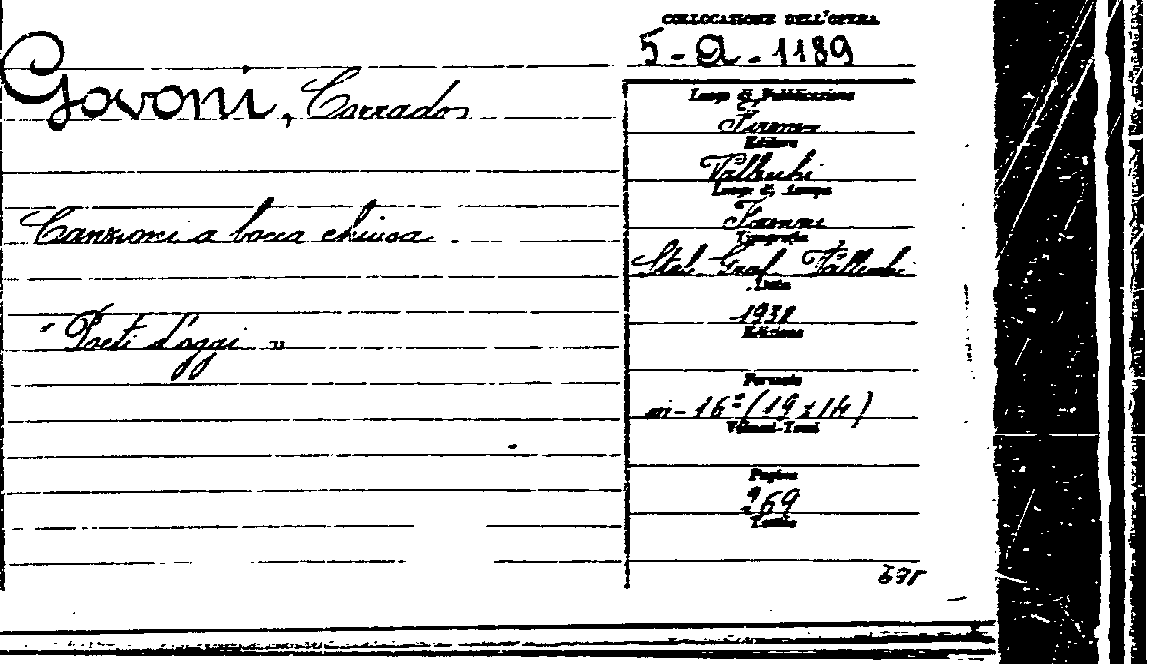 COLLOCAZIONE DELL'OPERA
5-a-1189
Govoni, Corrado
Luogo di Pubblicazione
Firenze
Editore
Vallecchi
Luogo di stampa
Firenze
Canzoni a bocca chiusa.
Tipografia
Stab. Graf. Vallecchi
Data
1938
"Poeti d'oggi"
Edizione
Formato
in-16º (19x14)
Volumi-Tomi
Pagine
269
Tavole